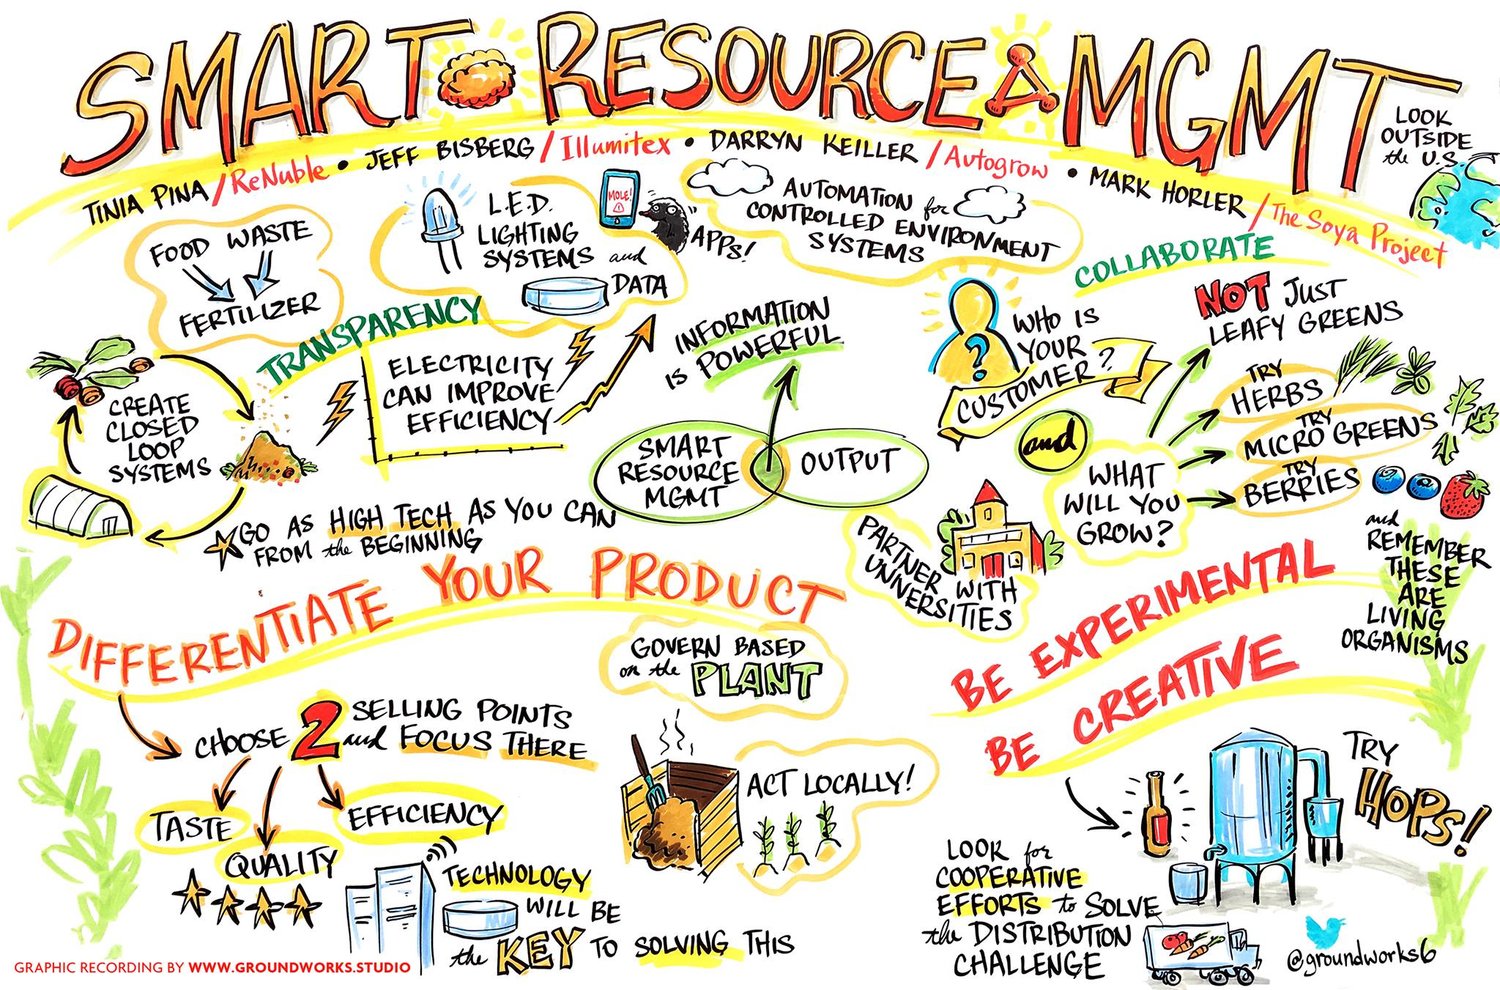 SMART RESOURCE MGMT
TINIA PINA / ReNuble • JEFF BISBERG / Illumitex • DARRYN KEILLER / Autogrow • MARK HORLER / The Soya Project
LOOK
OUTSIDE
the U.S.
FOOD WASTE
FERTILIZER
L.E.D.
LIGHTING
SYSTEMS and
DATA
MOLE!
APPS!
AUTOMATION for
CONTROLLED ENVIRONMENT
SYSTEMS
COLLABORATE
TRANSPARENCY
CREATE
CLOSED
LOOP
SYSTEMS
ELECTRICITY
CAN IMPROVE
EFFICIENCY
INFORMATION
IS POWERFUL
SMART
RESOURCE
MGMT
OUTPUT
GO AS HIGH TECH AS YOU CAN
FROM the BEGINNING
WHO IS
YOUR
CUSTOMER?
?
and
WHAT
WILL YOU
GROW?
NOT JUST
LEAFY GREENS
TRY
HERBS
TRY
MICRO GREENS
TRY
BERRIES
and
REMEMBER
THESE
ARE
LIVING
ORGANISMS
PARTNER
WITH
UNIVERSITIES
DIFFERENTIATE YOUR PRODUCT
CHOOSE 2 SELLING POINTS
and FOCUS THERE
TASTE
QUALITY
EFFICIENCY
TECHNOLOGY
WILL BE
the KEY TO SOLVING THIS
GOVERN BASED
on the PLANT
ACT LOCALLY!
BE EXPERIMENTAL
BE CREATIVE
TRY
HOPS!
LOOK for
COOPERATIVE
EFFORTS to SOLVE
the DISTRIBUTION
CHALLENGE
@groundworks6
GRAPHIC RECORDING BY WWW.GROUNDWORKS.STUDIO